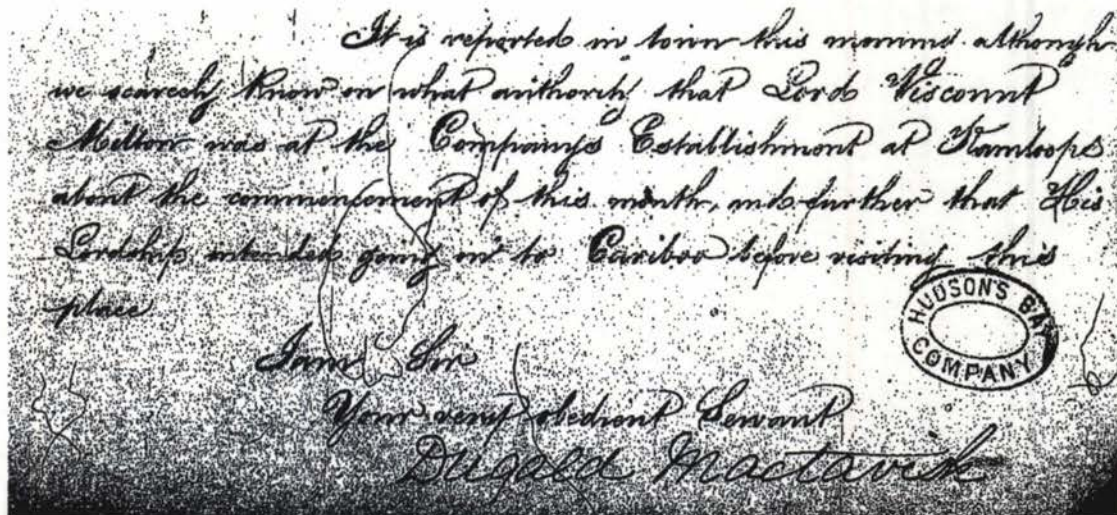 It is reported in town this morning although
we scarcely know on what authority that Lord Viscount
Milton was at the Company's Establishment at Kamloops
about the commencement of this month, and further that His
Lordship intended going on to Cariboo before visiting this
place
HUDSON'S BAY
COMPANY
I am Sir
Your very obedient Servant
Dugald Mactavish